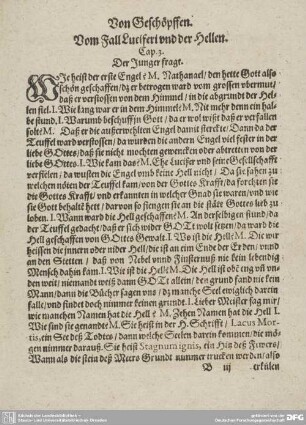 Von Geschöpffen.
Vom Fall Luciferi vnd der Hellen.
Cap. 3.
Der Junger fragt.
WIe heist der erste Engel? M. Nathanael/ den hette Gott also
schön geschaffen/ dz er betrogen ward vom grossen vbermut/
daß er verstossen von dem Himmel/ in die abgrundt der Hel-
len fiel. I. Wie lang war er in dem Himmel? M. Nit mehr denn ein hal-
be stund. I. Warumb beschuff in Gott/ da er wol wißt daß er verfallen
solt? M. Daß er die außerwehlten Engel damit sterckte/ Dann da der
Teuffel ward verstossen/ da wurden die andern Engel viel fester in der
liebe GOttes/ daß sie nicht mochten gewencken oder abtretten von der
liebe GOttes. I. Wie kam das? M. Ehe Lucifer vnd seine Gesellschafft
verfielen/ da wusten die Engel vmb keine Hell nicht/ Da sie sahen zu
welchen nöten der Teuffel kam/ von der Gottes Krafft/ da forchten sie
die Gottes Krafft/ vnd erkannten in welcher Gnad sie waren/ vnd wie
sie Gott behalten hett/ darvon so fiengen sie an die stäte Gottes lieb zu
loben. I. Wann ward die Hell geschaffen? M. An derselbigen stund/ da
der Teuffel gedacht/ daß er sich wider GOT wolt setzen/ da ward die
Hell geschaffen von GOttes Gewalt. I. Wo ist die Hell? M. Die wir
heissen die jnnern oder nider Hell/ die ist an eim Ende der Erden/ vnnd
an den Stetten/ daß von Nebel vnnd Finsternuß nie kein lebendig
Mensch dahin kam. I. Wie ist die Hell? M. Die Hell ist obē eng vñ vn-
den weit/ niemandt weiß dann GOTT allein/ den grund fand nie kein
Mann/ dann die Bücher sagen vns/ dz manche Seel ewiglich darein
falle/ vnd findet doch nimmer keinen grundt. I. Lieber Meister sag mir/
wie manchen Namen hat die Hell? M. Zehen Namen hat die Hell. I.
Wie sind sie genandt? M. Sie heist in der H. Schrifft/ Lacus Mor-
tis, ein See deß Todtes/ dann welche Seelen darein kommen/ die mö-
gen nimmer darauß. Sie heist Stagnum ignis, ein
Wann als die stein deß Meers Grundt nimmer trucken werden/ also
B iij erkülen